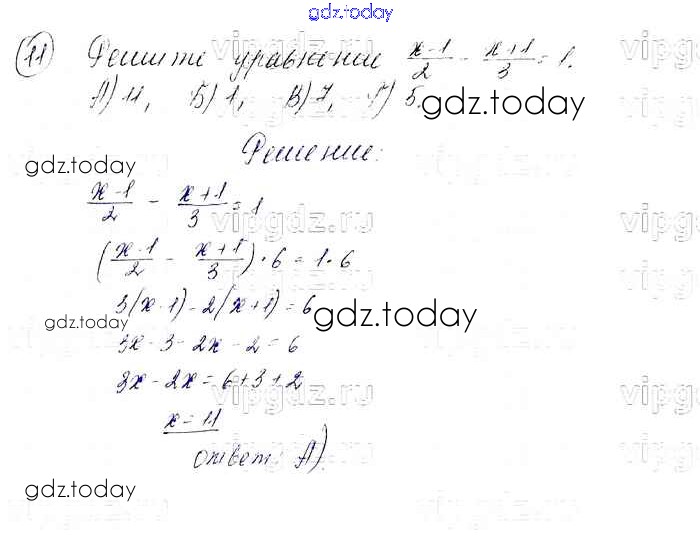 gdz.today
11 Решите уравнение (x-1)/2 - (x+1)/3 = 1.
А) 11, Б) 1, В) 7, Г) 5.
gdz.today
Решение:
gdz.today
(x-1)/2 - (x+1)/3 = 1
vipgdz.ru
((x-1)/2 - (x+1)/3) · 6 = 1 · 6
3(x-1) - 2(x+1) = 6
gdz.today
gdz.today
3x - 3 - 2x - 2 = 6
3x - 2x = 6 + 3 + 2
vipgdz.ru
x = 11
ответ: А)
gdz.today
vipgdz.ru